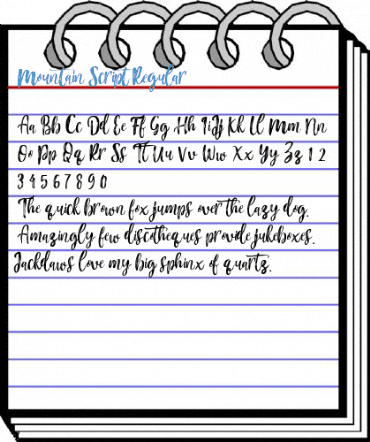 Mountain Script Regular
Aa Bb Cc Dd Ee Ff Gg Hh Ii Jj Kk Ll Mm Nn
Oo Pp Qq Rr Ss Tt Uu Vv Ww Xx Yy Zz 1 2
3 4 5 6 7 8 9 0
The quick brown fox jumps over the lazy dog.
Amazingly few discotheques provide jukeboxes.
Jackdaws love my big sphinx of quartz.